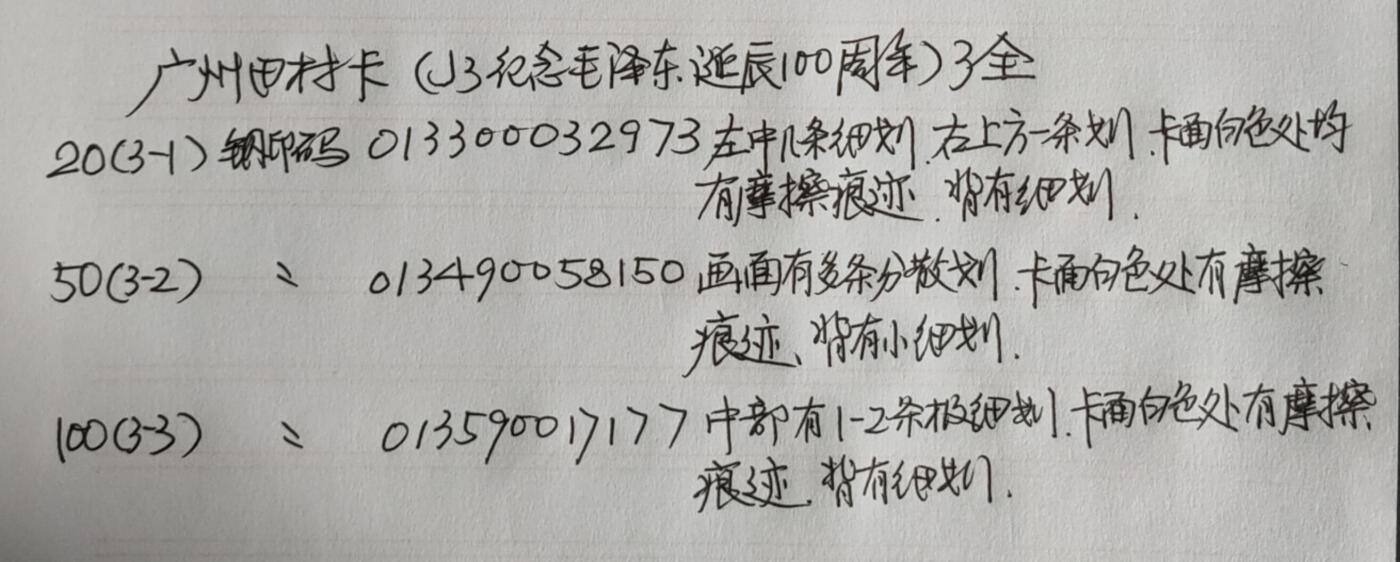 广州田村卡（J3纪念毛泽东诞辰100周年）3全
20(3-1) 钢印码 013300032973 左中几条细划.右上方一条划.卡面白色处均
有摩擦痕迹.背有细划.
50(3-2) 〃 013490058150 画面有多条分散划.卡面白色处有摩擦
痕迹、背有小细划.
100(3-3) 〃 013590017177 中部有1-2条极细划.卡面白色处有摩擦
痕迹.背有细划.